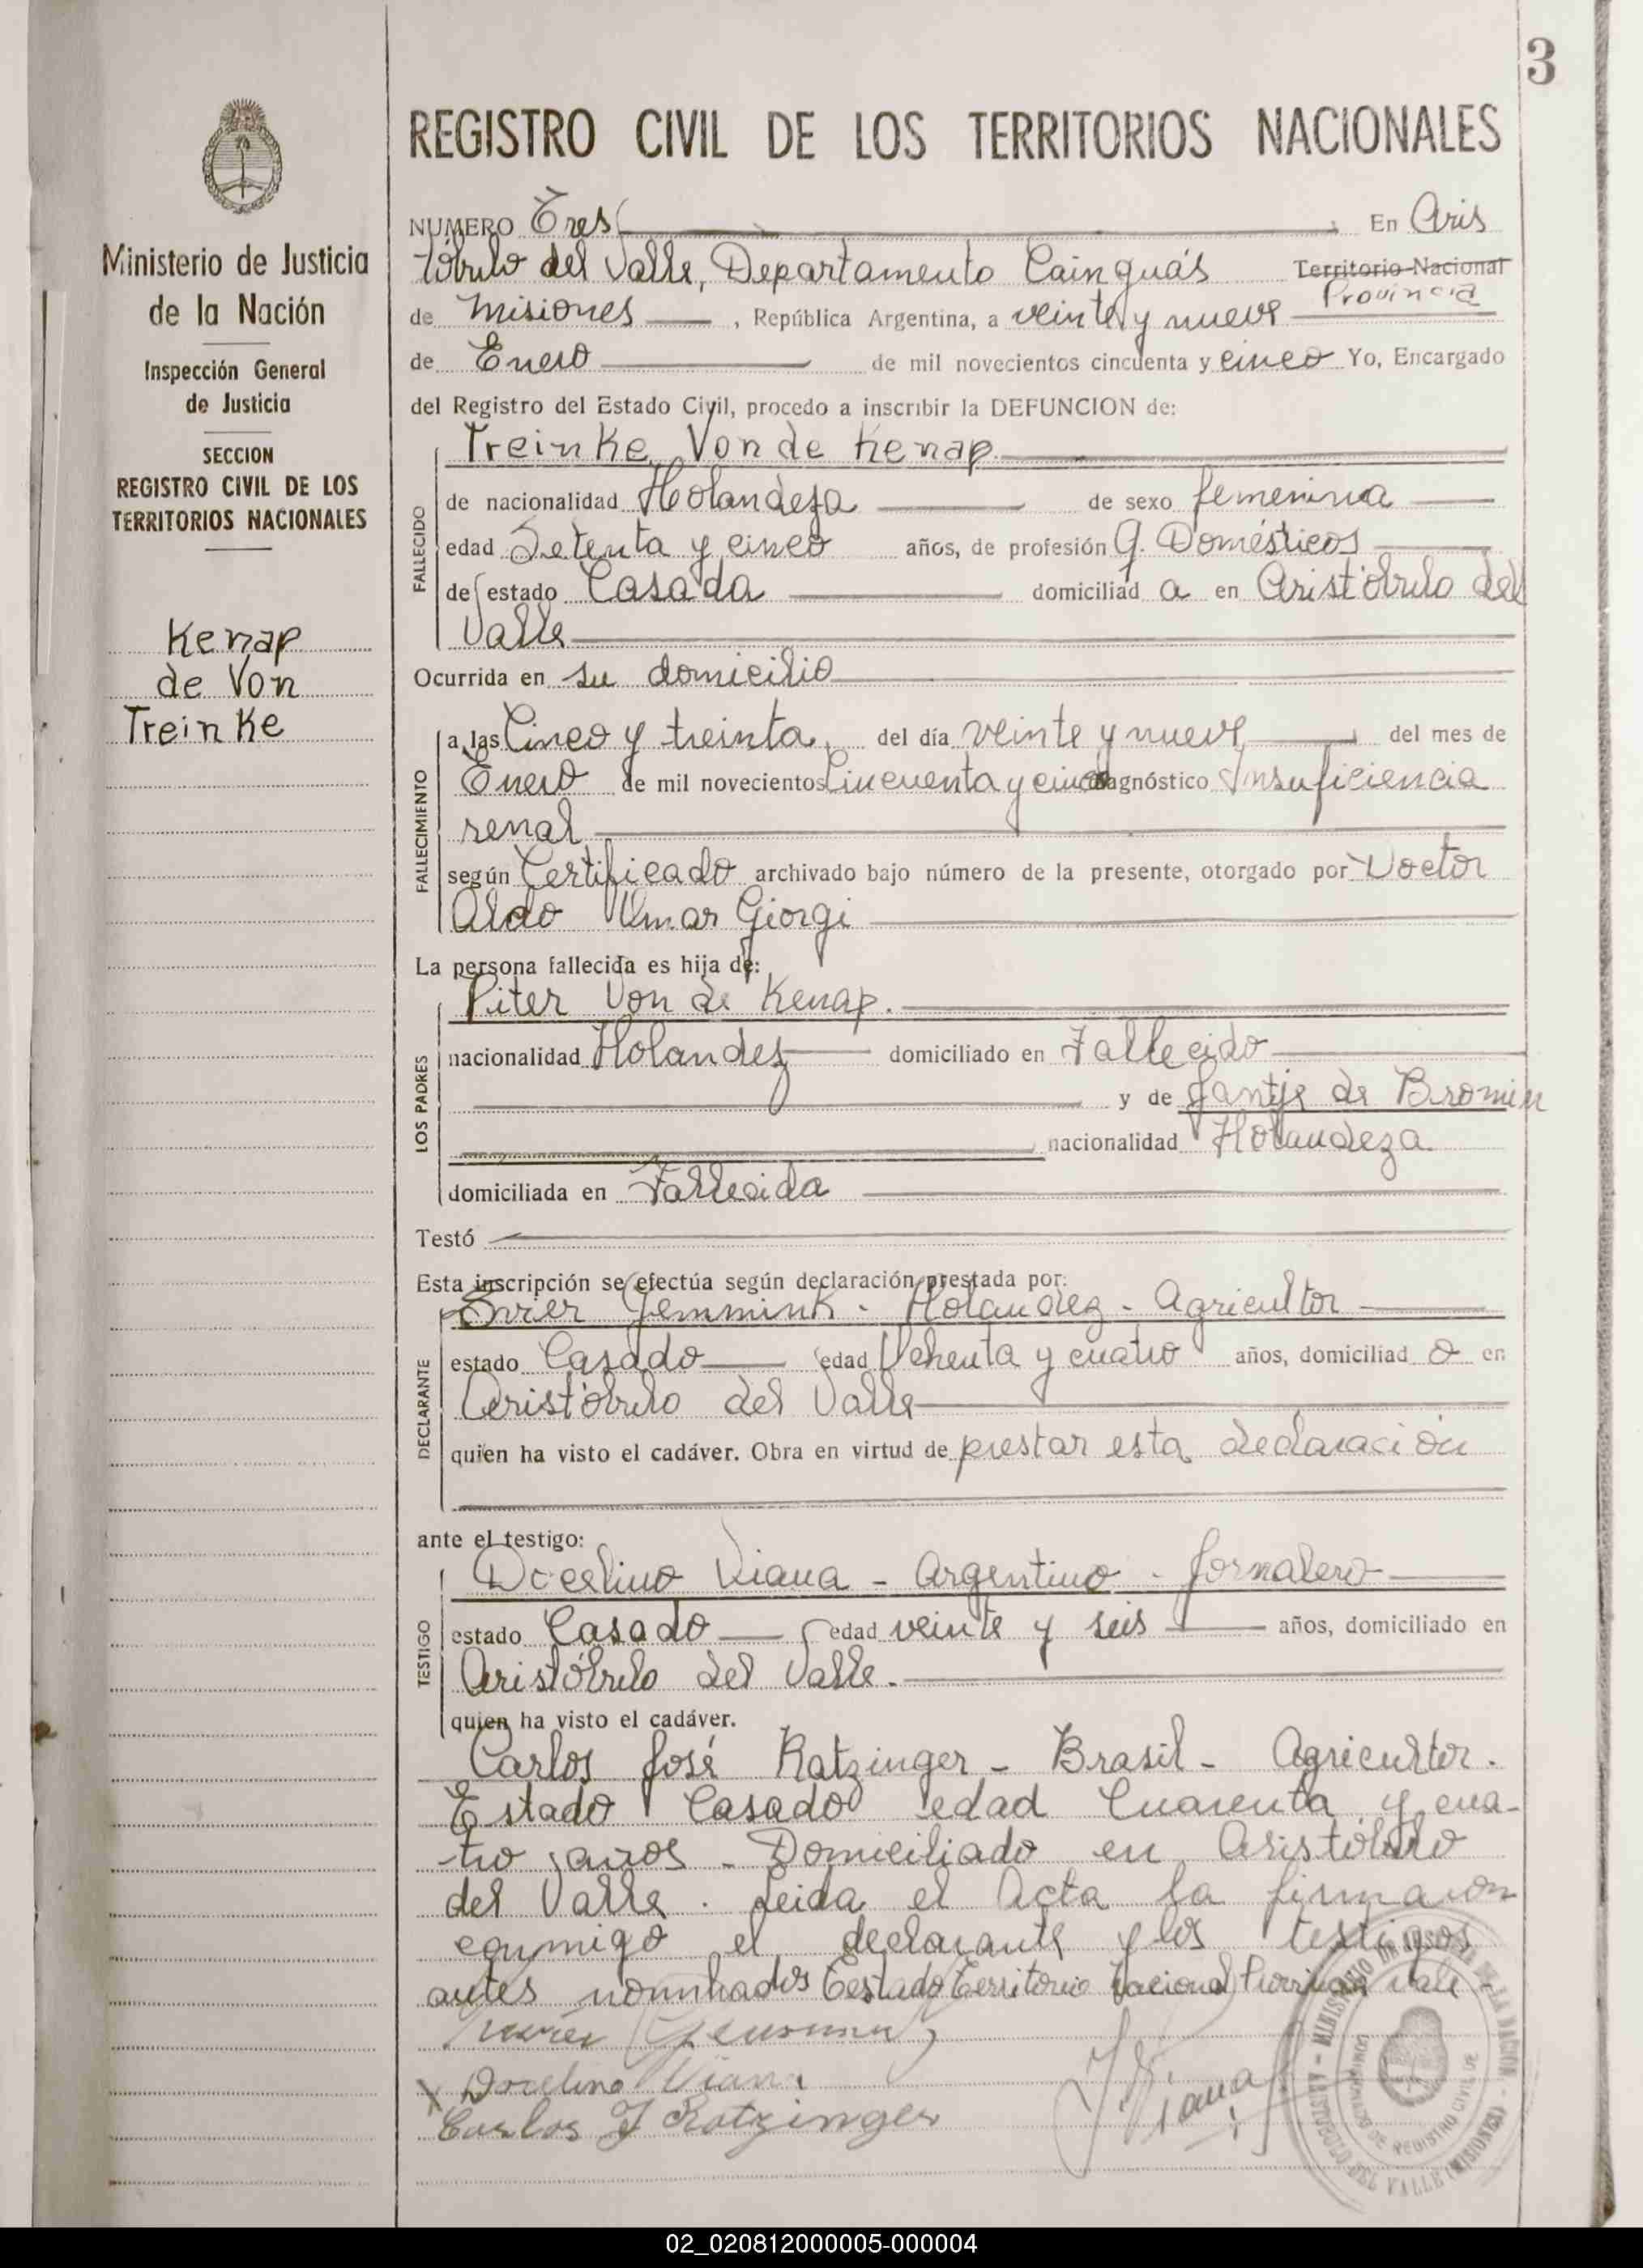 3
REGISTRO CIVIL DE LOS TERRITORIOS NACIONALES
Ministerio de Justicia
de la Nación
Inspección General
de Justicia
SECCION
REGISTRO CIVIL DE LOS
TERRITORIOS NACIONALES
Kenap
de Von
Treinke
NUMERO Tres En Aris
tóbulo del Valle, Departamento Cainguás Territorio Nacional
Provincia
de Misiones, República Argentina, a veinte y nueve
de Enero de mil novecientos cincuenta y cinco Yo, Encargado
del Registro del Estado Civil, procedo a inscribir la DEFUNCION de:
FALLECIDO
Treinke Von de Kenap
de nacionalidad Holandesa de sexo femenina
edad Setenta y cinco años, de profesión Q. Domésticos
de estado Casada domiciliad a en Aristóbulo del
Valle
Ocurrida en su domicilio
FALLECIMIENTO
a las Cinco y treinta, del día veinte y nueve del mes de
Enero de mil novecientos Cincuenta y cinco diagnóstico Insuficiencia
renal
según Certificado archivado bajo número de la presente, otorgado por Doctor
Aldo Umar Giorgi
La persona fallecida es hija de:
LOS PADRES
Piter Von de Kenap.
nacionalidad Holandez domiciliado en Fallecido
y de Jantje de Bromin
nacionalidad Holandeza
domiciliada en Fallecida
Testó
Esta inscripción se efectúa según declaración prestada por:
DECLARANTE
Jemmink - Holandez - Agricultor
estado Casado edad y cuatro años, domiciliad o en
Aristóbulo del Valle
quien ha visto el cadáver. Obra en virtud de prestar esta declaración
ante el testigo:
TESTIGO
Docelino Viana - Argentino - Jornalero
estado Casado edad veinte y seis años, domiciliado en
Aristóbulo del Valle.
quien ha visto el cadáver.
Carlos José Ratzinger - Brasil - Agricultor.
Estado Casado edad Cuarenta y cua-
tro años - Domiciliado en Aristóbulo
del Valle. Leida el Acta la firmaron
conmigo el declarante y los testigos
antes nombrados Testado Territorio Nacional Vale-
Docelino Viana
Carlos J Ratzinger
Viana
MINISTERIO DE JUSTICIA DE LA NACION - ARISTOBULO DEL VALLE (MISIONES)
DE REGISTRO CIVIL DE
02_020812000005-000004